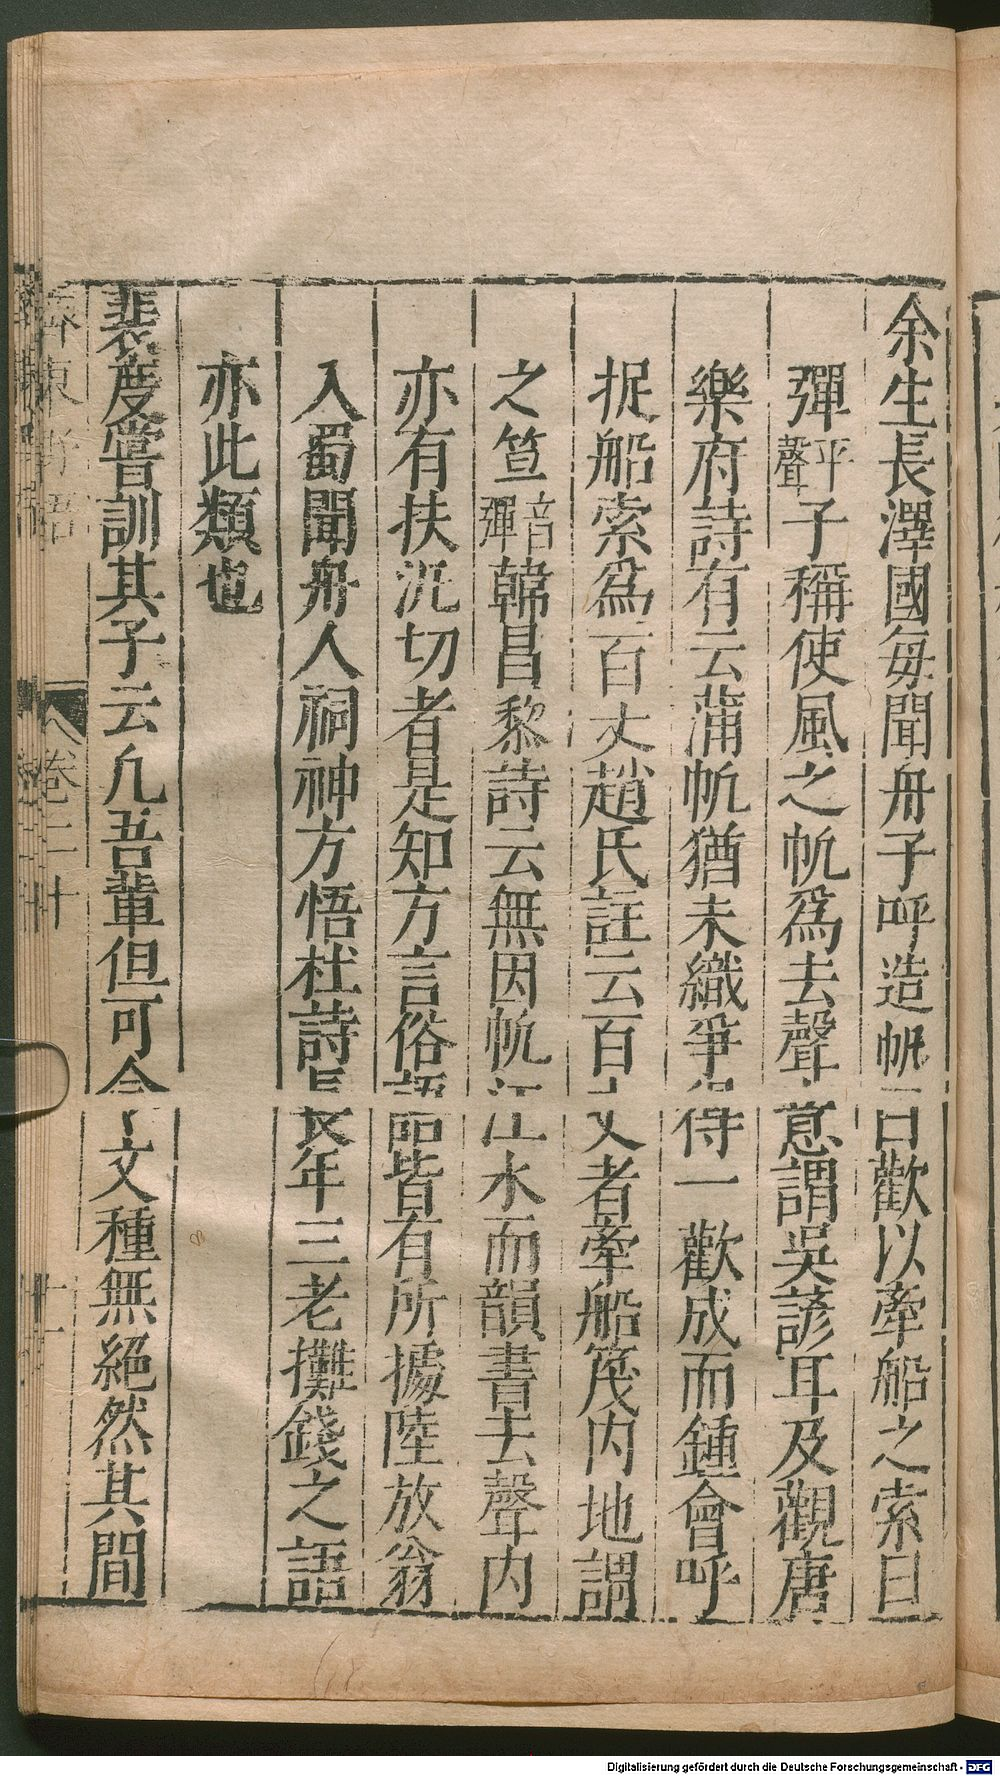 余生長澤國每聞舟子呼造帆曰歡以牽船之索曰
彈平聲子稱使風之帆爲去聲意謂吳諺耳及觀唐
樂府詩有云蒲帆猶未織爭得一歡成而鍾會呼
捉船索爲百丈趙氏註云百丈者牽船篾内地謂
之笪音彈韓昌黎詩云無因帆江水而韻書去聲内
亦有扶泛切者是知方言俗語皆有所據陸放翁
入蜀聞舟人祠神方悟杜詩長年三老攤錢之語
亦此類也
裴度嘗訓其子云凡吾輩但可令文種無絕然其間
齊東野語 卷二十 十一
Digitalisierung gefördert durch die Deutsche Forschungsgemeinschaft - DFG